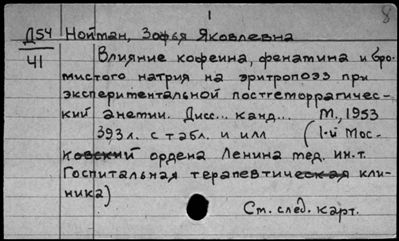 1
8
Д54 Нойман, Зофья Яковлевна
41
Влияние кофеина, фенатина и бро-
мистого натрия на эритропоэз при
экспериментальной постгеморрагичес-
кий анемии. Дисс... канд... М., 1953
393л. с табл. и илл (1-й Мос-
ковский ордена Ленина мед. ин.т.
Госпитальная терапевтическая кли-
ника)
См. след. карт.